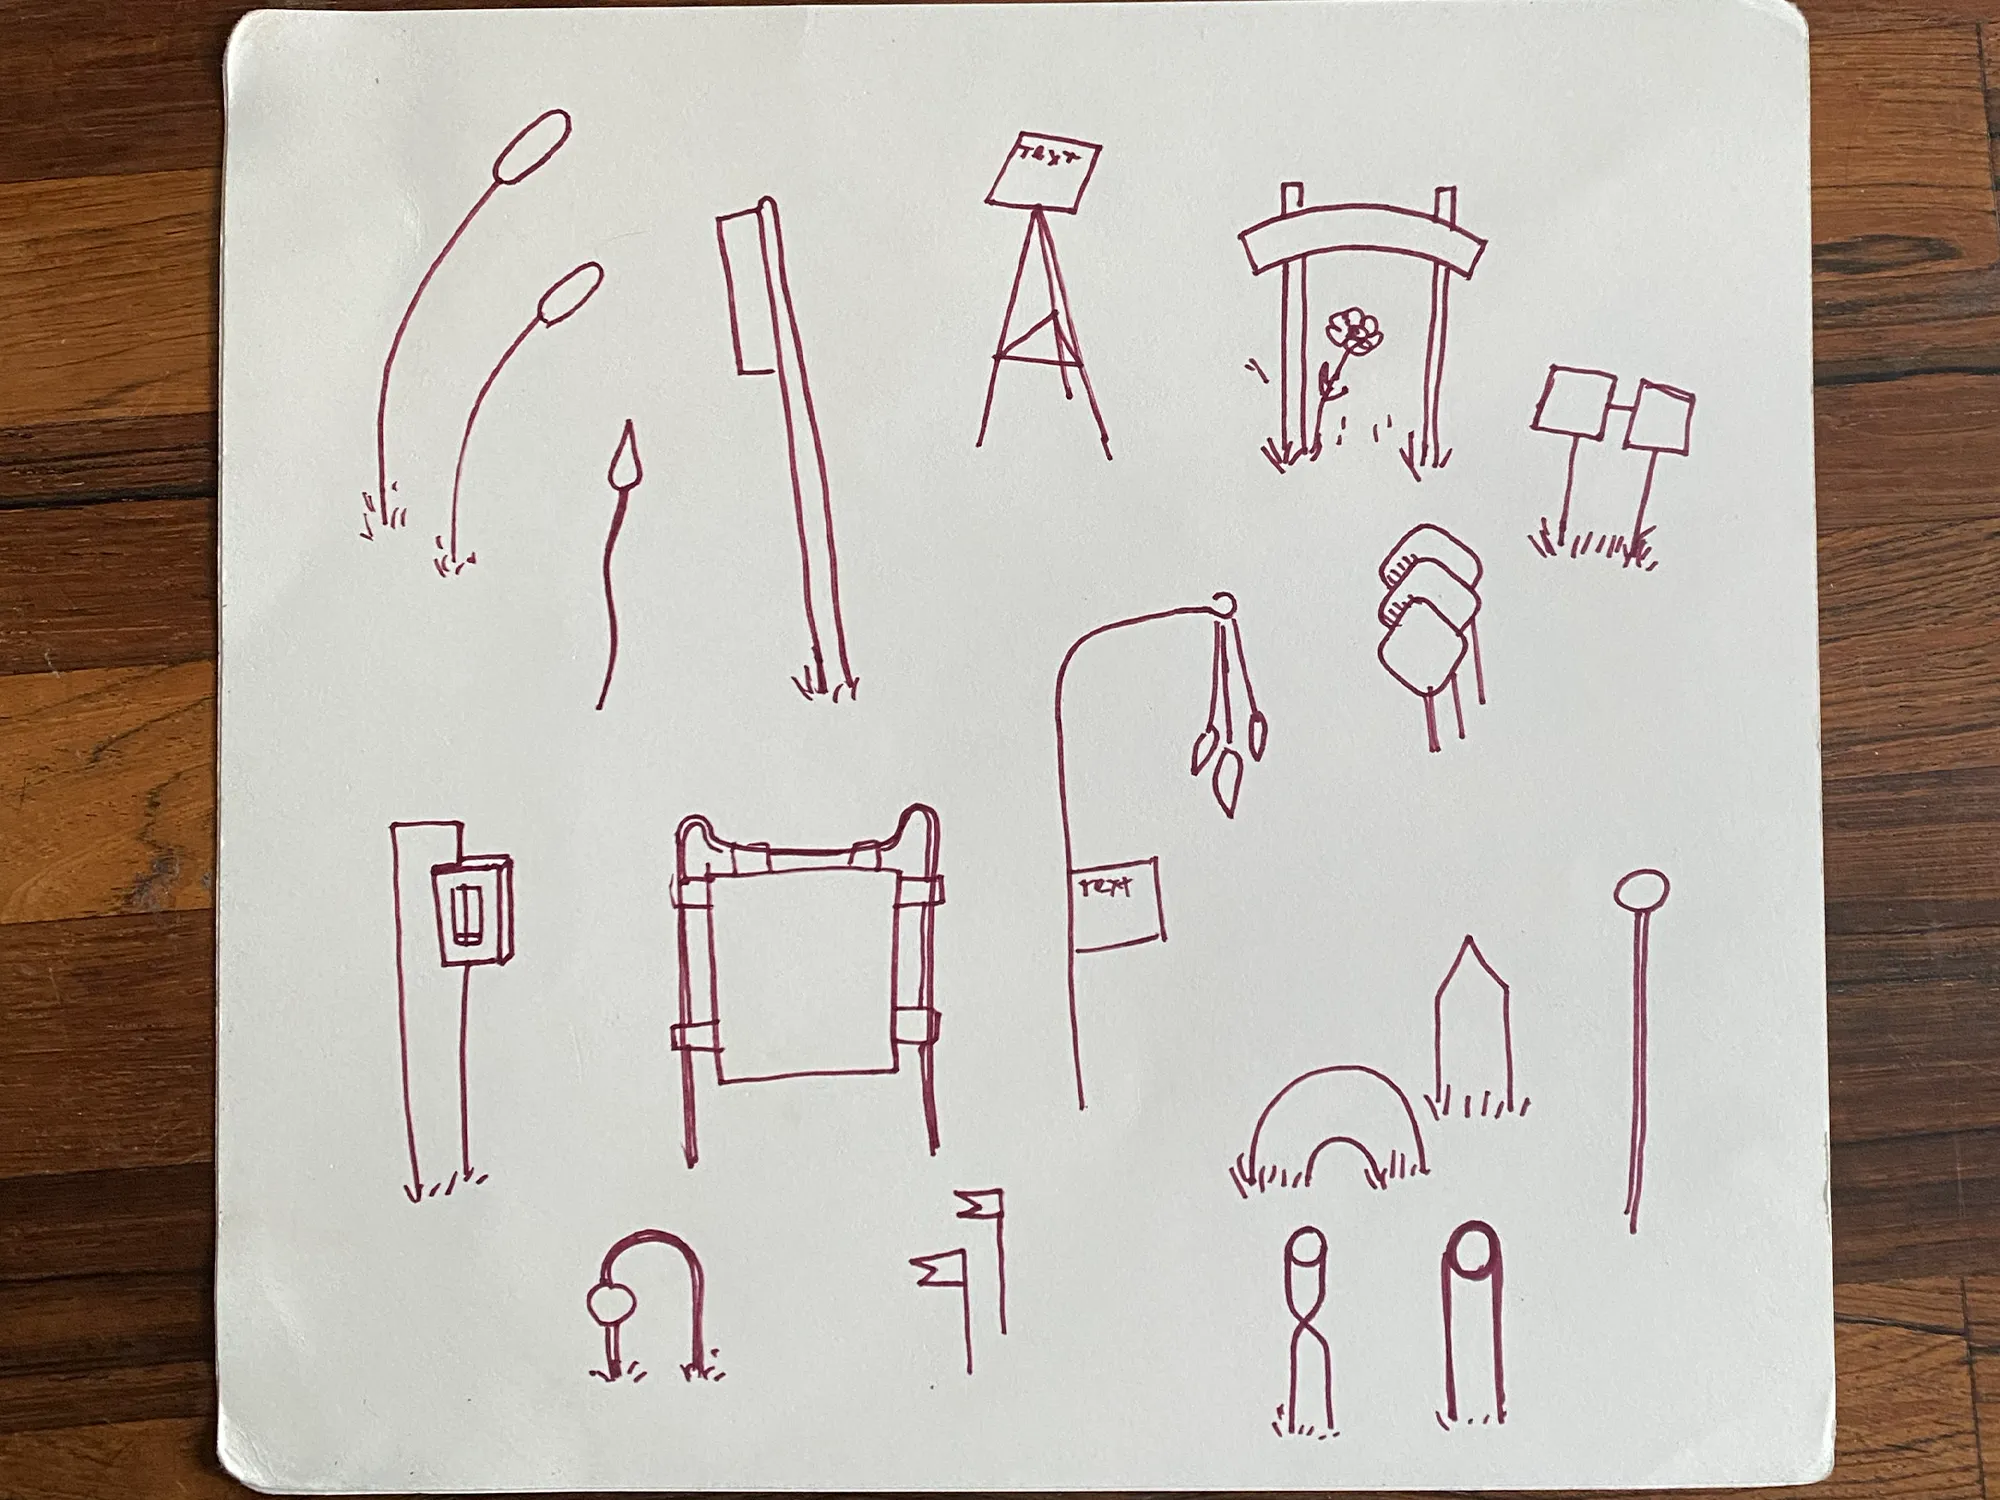 Text
Text